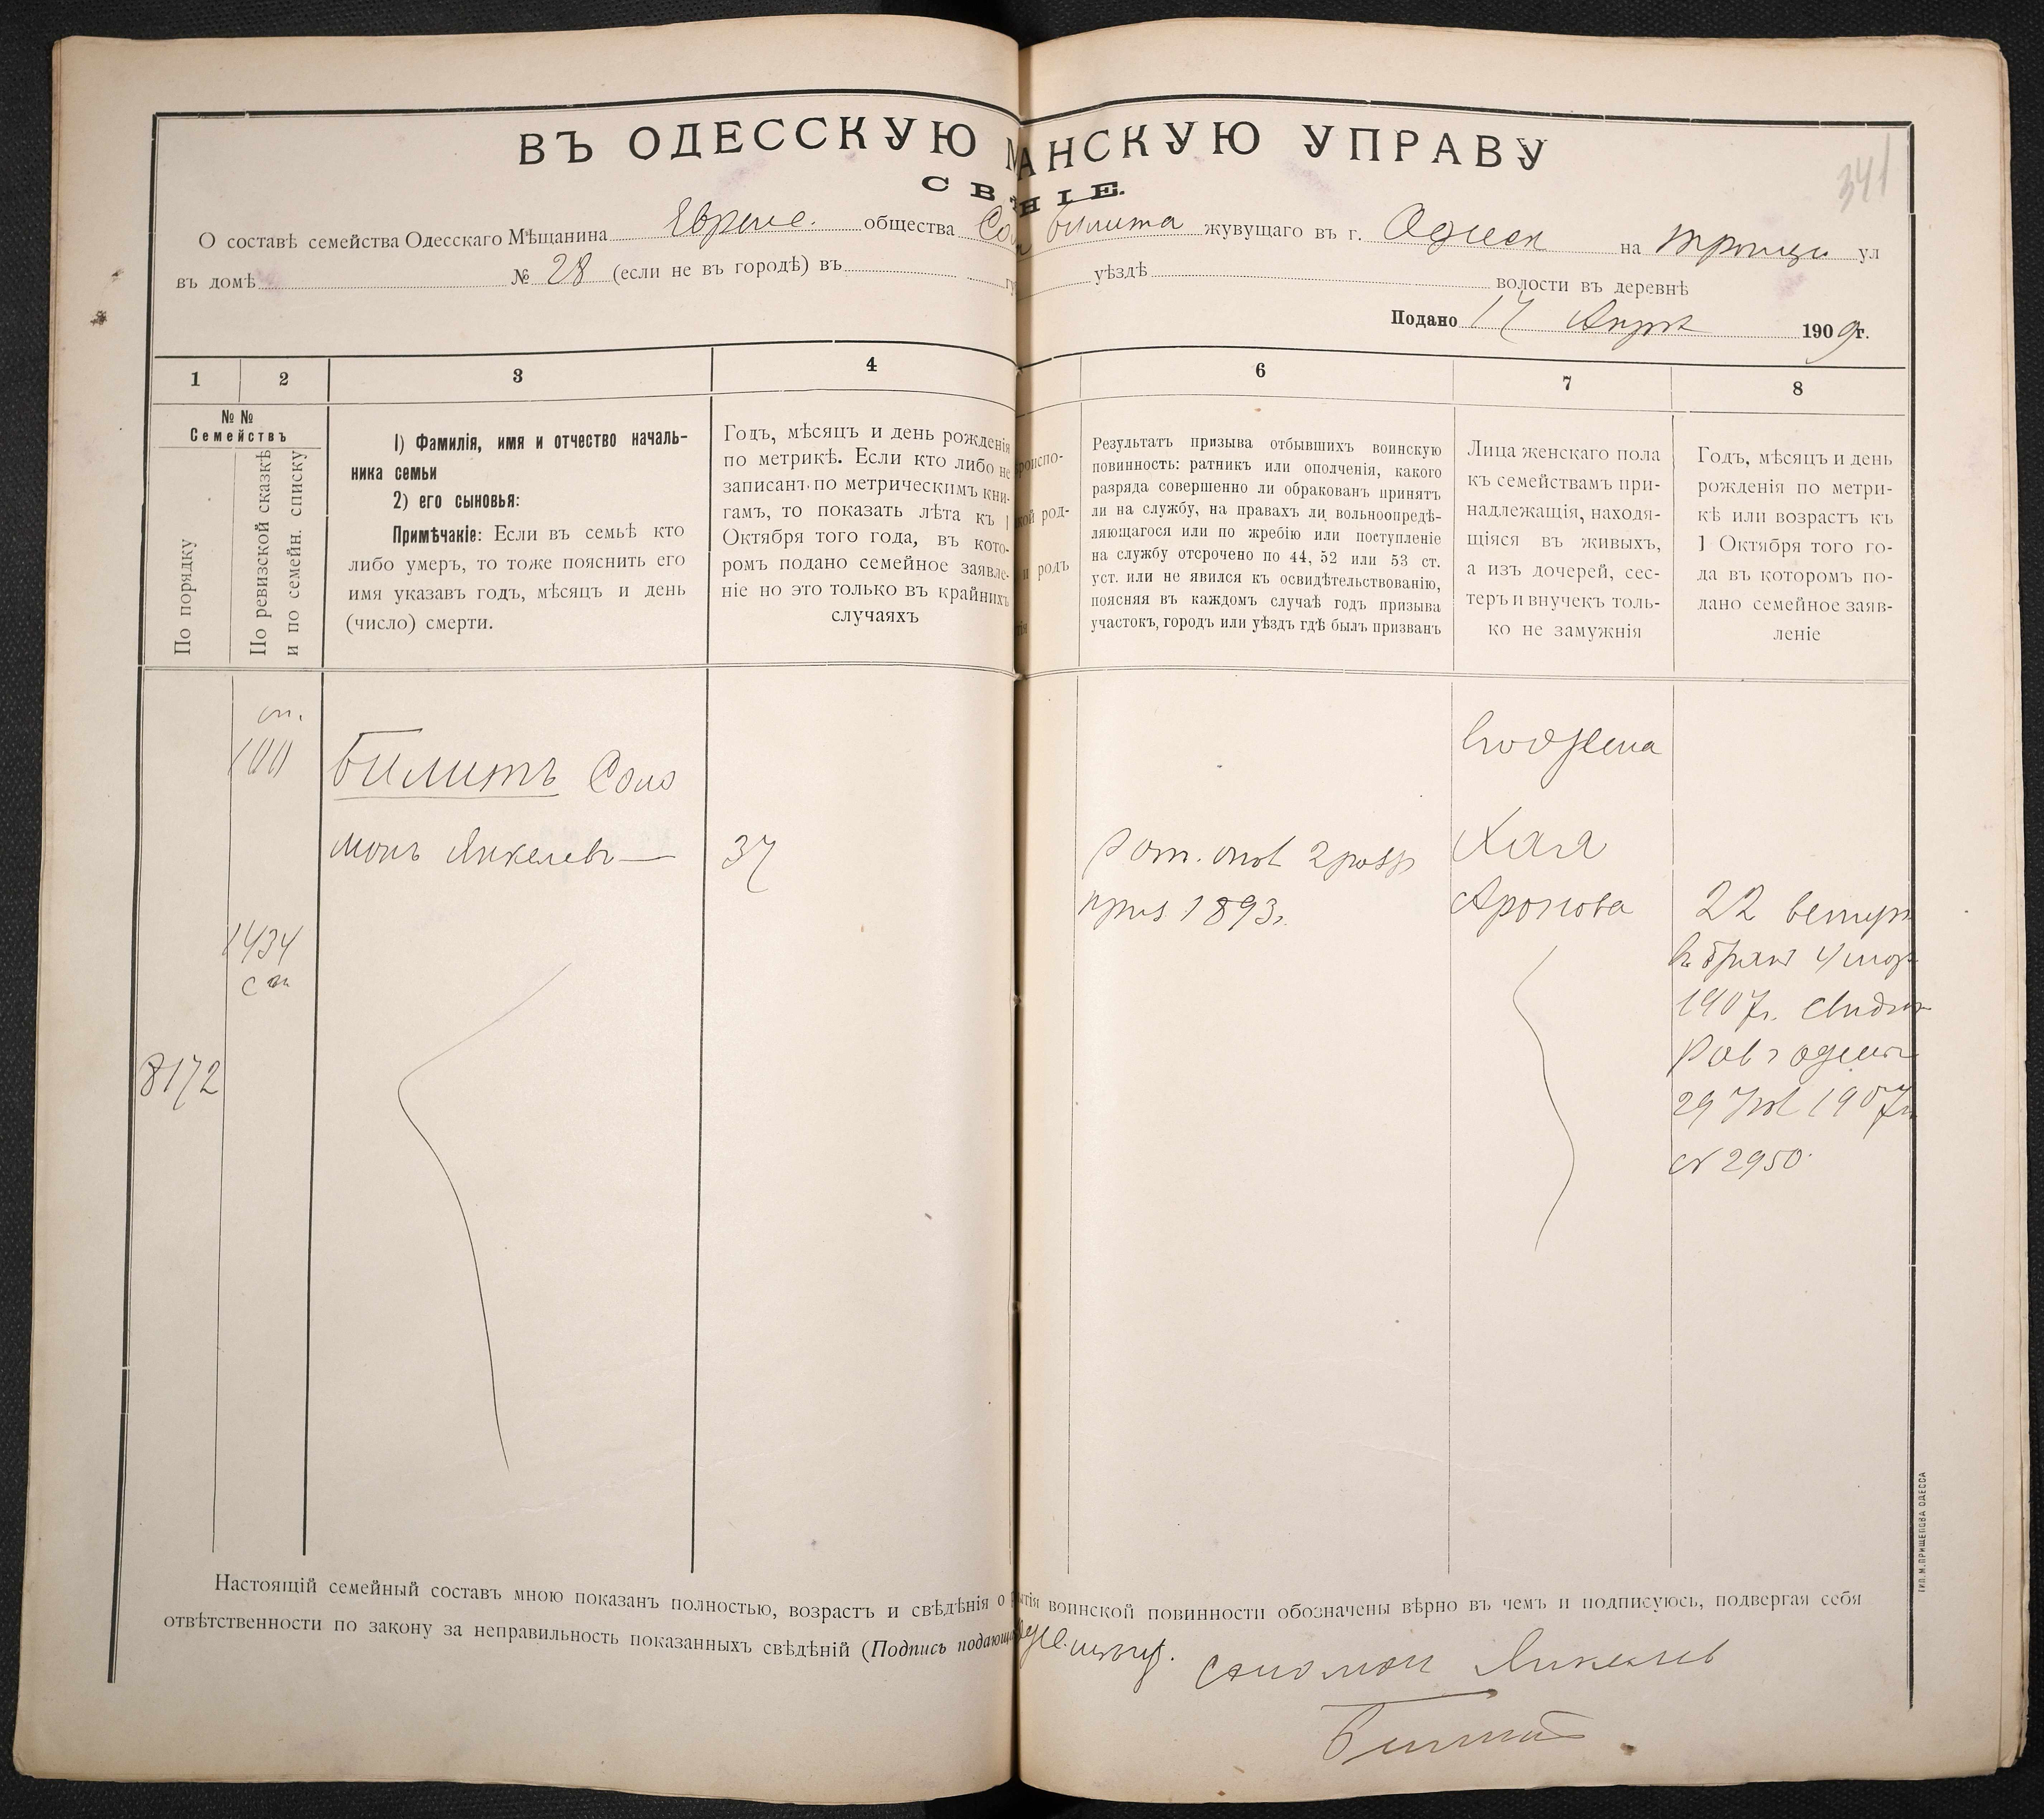 ВЪ ОДЕССКУЮ М АНСКУЮ УПРАВУ
СВ НІЕ.
341
О составѣ семейства Одесскаго Мѣщанина Евреис. общества Со Билита жувущаго въ г. Одесса на Троицк ул
въ домѣ № 28 (если не въ городѣ) въ уѣздѣ волости въ деревнѣ
Подано 17 Апрѣ 1909 г.
1 2 3 4 6 7 8
№ №
Семействъ
По порядку
По ревизской сказкѣ
и по семейн. списку
1) Фамилія, имя и отчество началь-
ника семьи
2) его сыновья:
Примѣчакіе: Если въ семьѣ кто
либо умеръ, то тоже пояснить его
имя указавъ годъ, мѣсяцъ и день
(число) смерти.
Годъ, мѣсяцъ и день рожденія
по метрикѣ. Если кто либо не
записанъ по метрическимъ кни-
гамъ, то показать лѣта къ 1
Октября того года, въ кото-
ромъ подано семейное заявле-
ніе но это только въ крайнихъ
случаяхъ
роиспо-
кой род-
и родъ
тія
Результатъ призыва отбывшихъ воинскую
повинность: ратникъ или ополченія, какого
разряда совершенно ли обракованъ принятъ
ли на службу, на правахъ ли вольноопредѣ-
ляющагося или по жребію или поступленіе
на службу отсрочено по 44, 52 или 53 ст.
уст. или не явился къ освидѣтельствованію,
поясняя въ каждомъ случаѣ годъ призыва
участокъ, городъ или уѣздъ гдѣ былъ призванъ
Лица женскаго пола
къ семействамъ при-
надлежащія, находя-
щіяся въ живыхъ,
а изъ дочерей, сес-
теръ и внучекъ толь-
ко не замужнія
Годъ, мѣсяцъ и день
рожденія по метри-
кѣ или возрастъ къ
1 Октября того го-
да въ которомъ по-
дано семейное заяв-
леніе
сп.
100
Билитъ Соло
монъ Янкелевъ
37
Рат. опол 2 разр
приз 1893г.
жена
Хая
Аронова
22 вступ
въ бракъ 4 мар
1907г. свидѣт
Рав г Одессы
29 1907г
№ 2950
1434
сп
8172
Настоящій семейный составъ мною показанъ полностью, возрастъ и свѣдѣнія о тія воинской повинности обозначены вѣрно въ чемъ и подписуюсь, подвергая себя
отвѣтственности по закону за неправильность показанныхъ свѣдѣній (Подпись подающа
Соломон Янкелев
Билит
ТИП. М. ПРИЩЕПОВА ОДЕССА